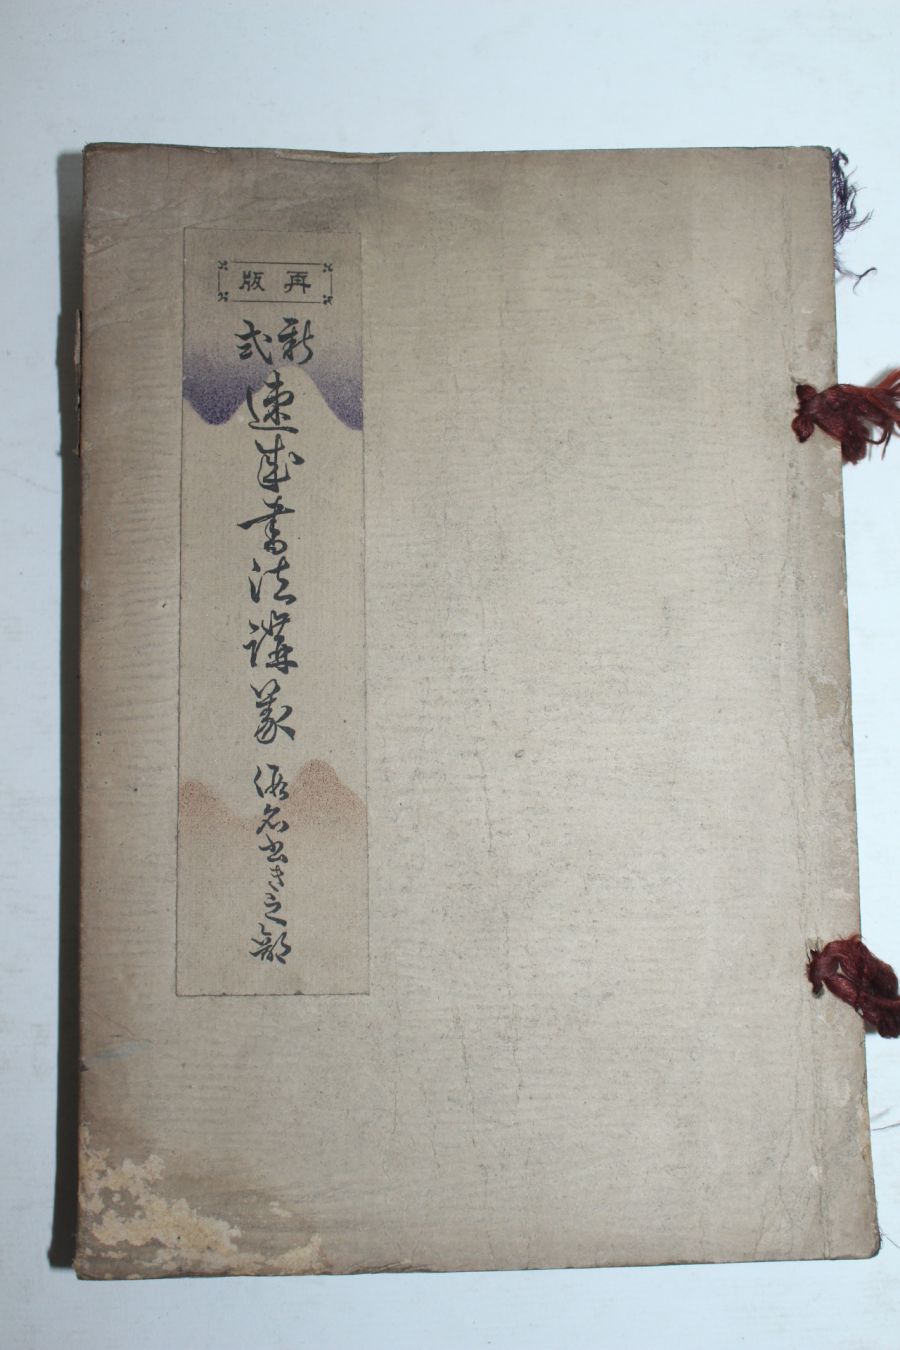 再版
新式
速成書法講義
假名書き之部